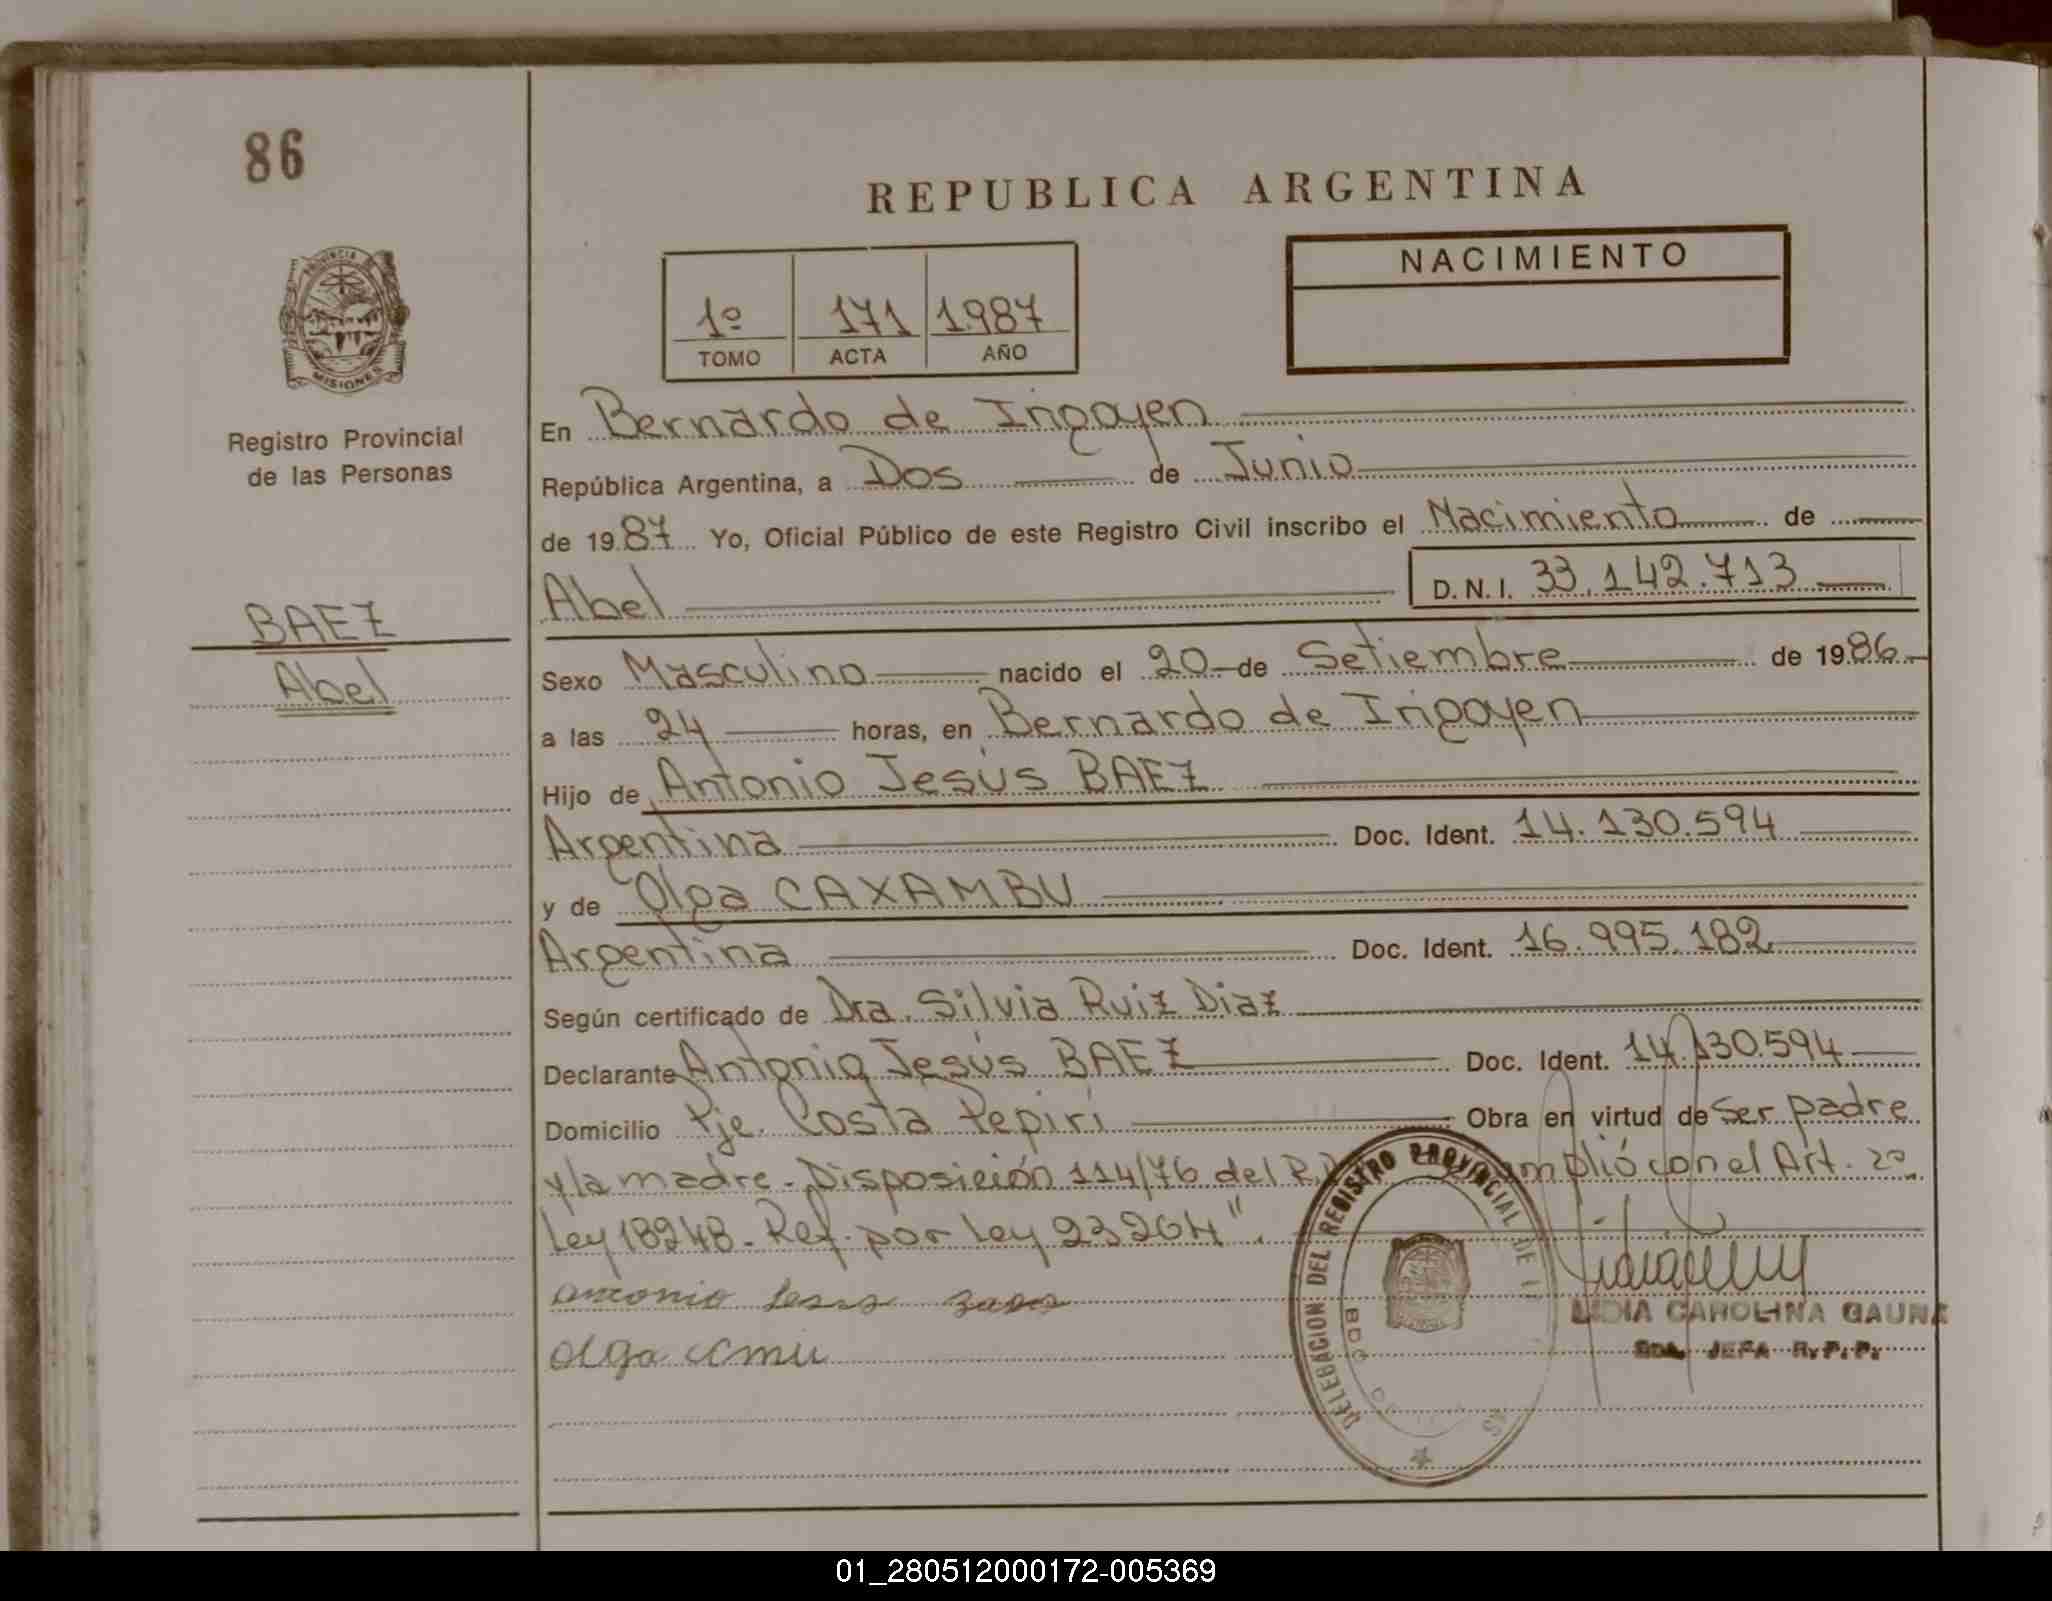 86
REPUBLICA ARGENTINA
NACIMIENTO
1º 171 1987
TOMO ACTA AÑO
PROVINCIA DE
MISIONES
Registro Provincial
de las Personas
BAEZ
Abel
En Bernardo de Irigoyen
República Argentina, a Dos de Junio
de 1987 Yo, Oficial Público de este Registro Civil inscribo el Nacimiento de
Abel D.N.I. 33.142.713
Sexo Masculino nacido el 20 de Setiembre de 1986
a las 24 horas, en Bernardo de Irigoyen
Hijo de Antonio Jesús BAEZ
Argentina Doc. Ident. 14.130.594
y de Olga CAXAMBU
Argentina Doc. Ident. 16.995.182
Según certificado de Dra. Silvia Ruiz Diaz
Declarante Antonio Jesús BAEZ Doc. Ident. 14.130.594
Domicilio Pje. Costa Pepirí Obra en virtud de Ser padre
y la madre. Disposición 114/76 del R.P. mplió con el Art. 2º
Ley 18248. Ref. por Ley 23264".
antonio
olga
DELEGACION DEL REGISTRO PROVINCIAL DE
LIDIA CAROLINA GAUNA
JEFA R.P.P.
01_280512000172-005369